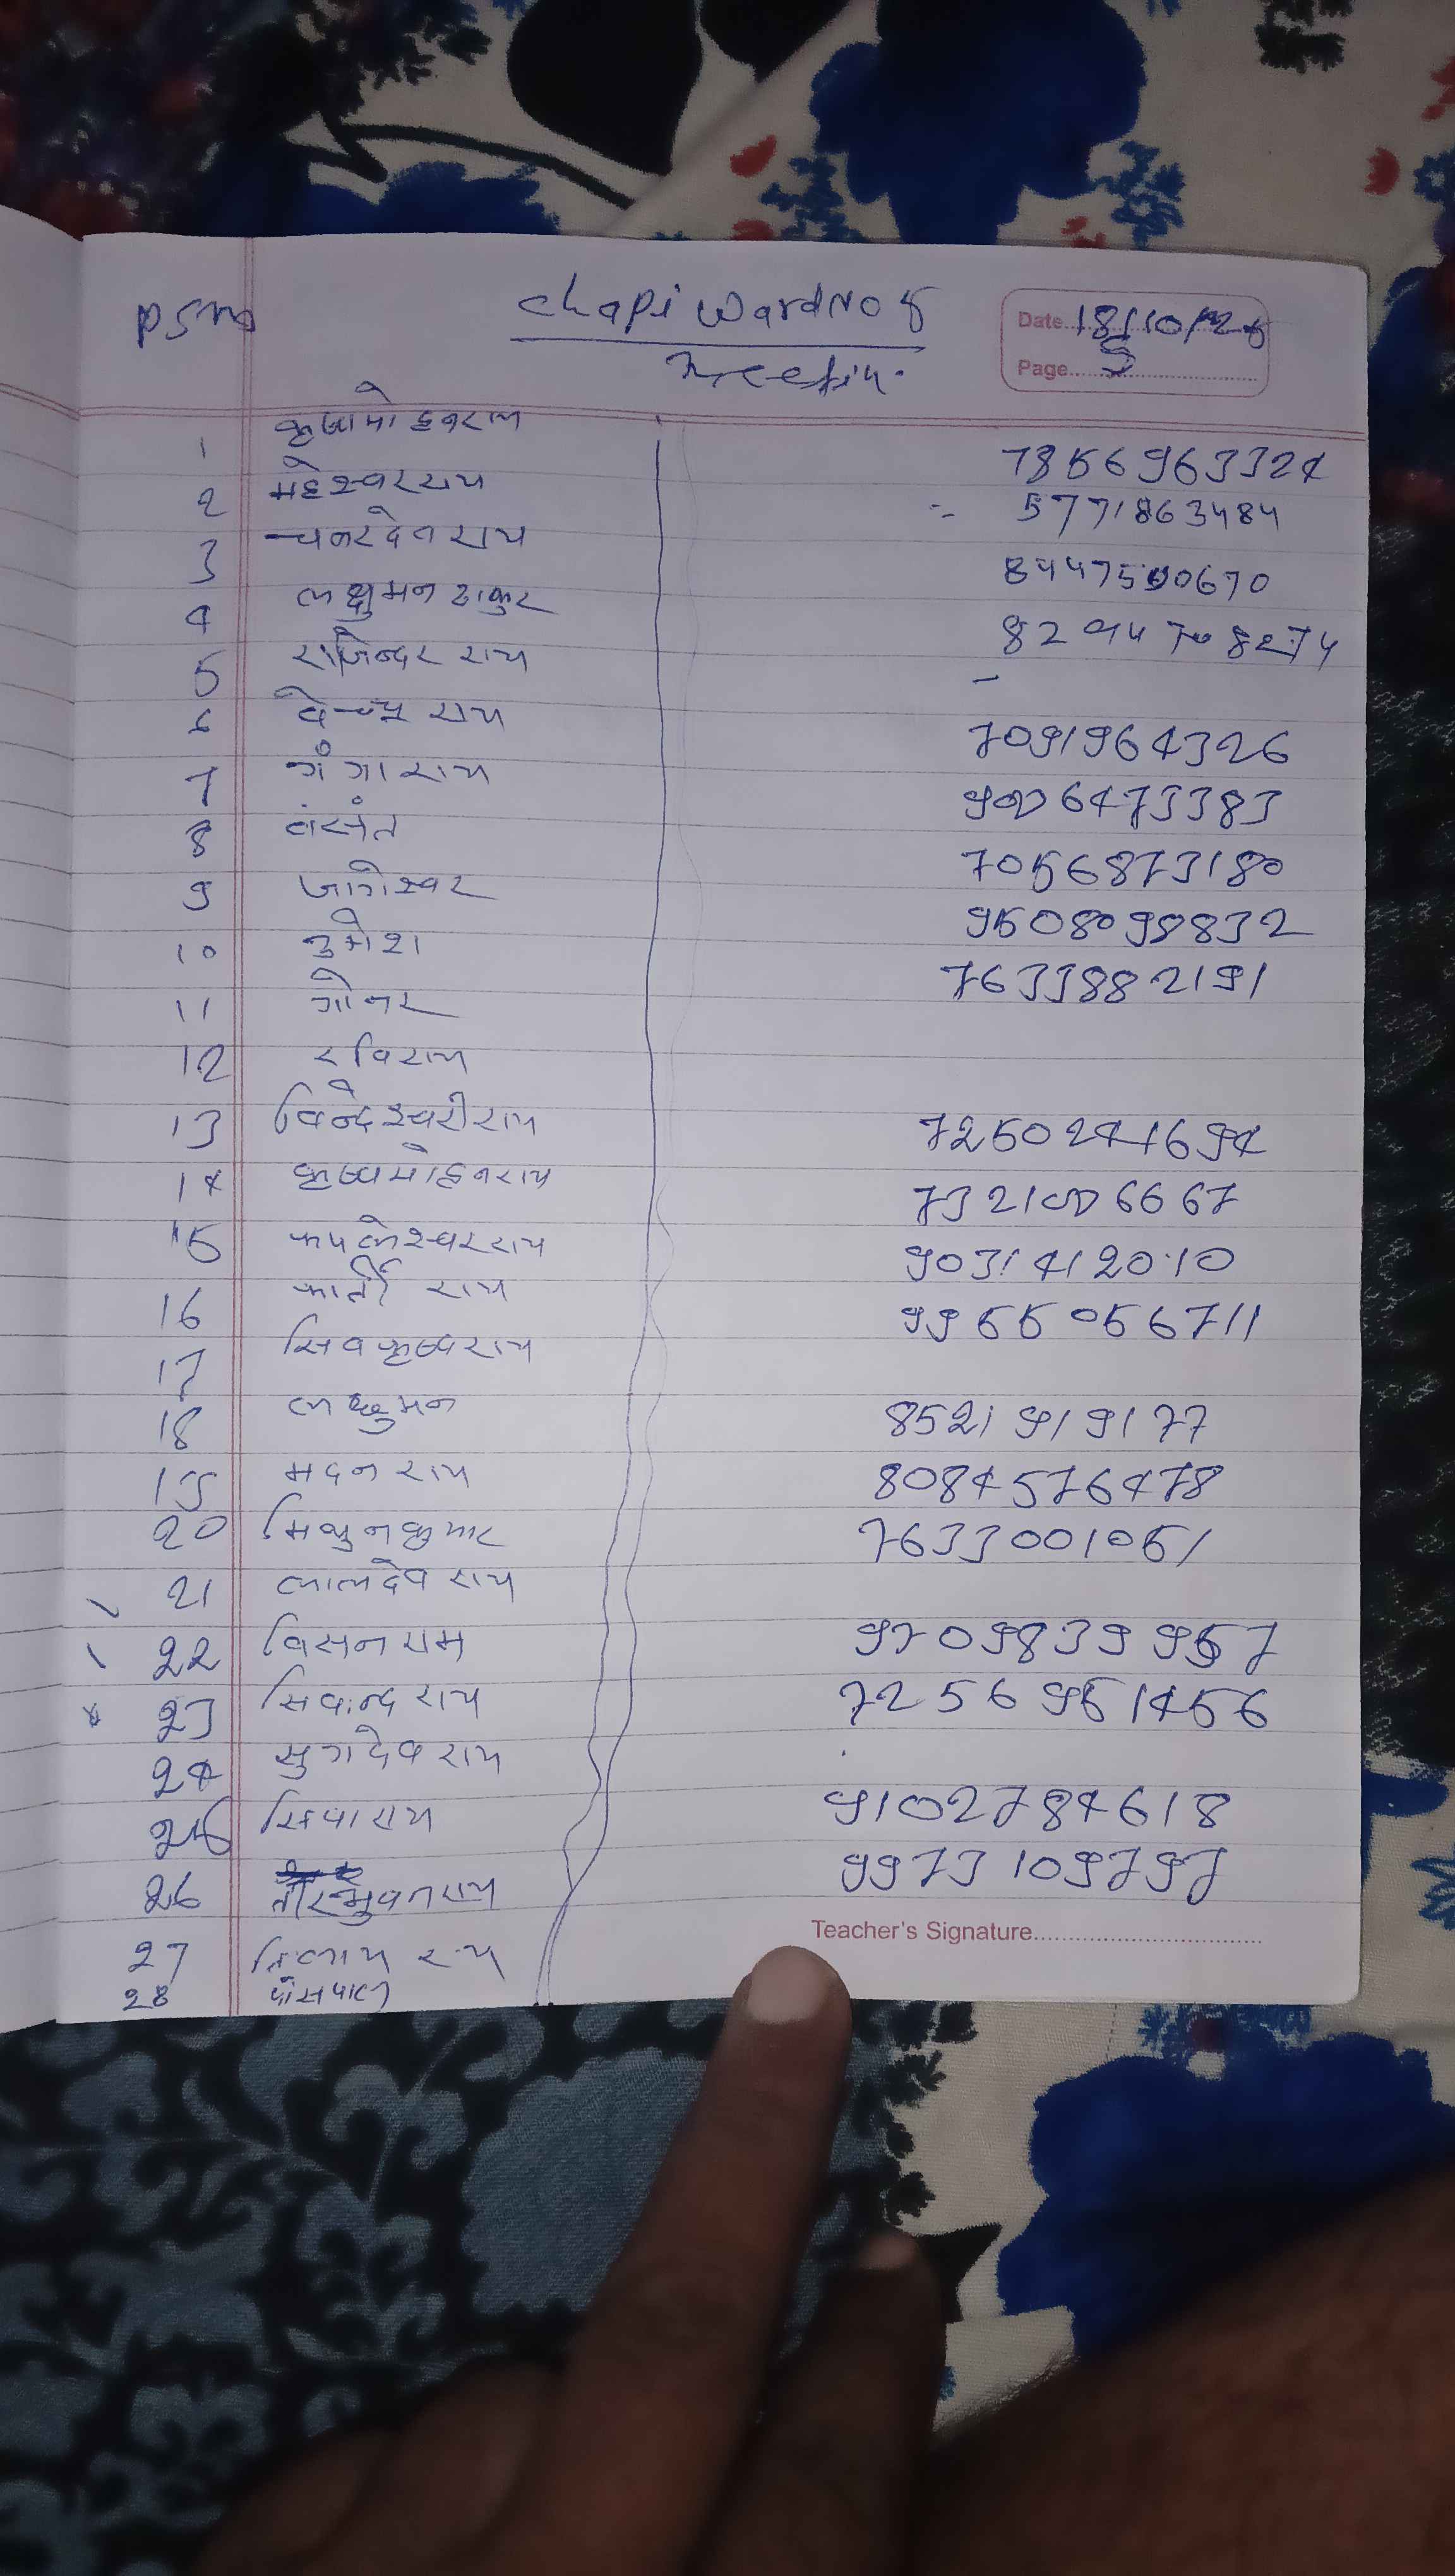 chapi ward No 5
Meetin.
Date 18/10/25
Page 5
1 कृष्णमोहन राय 7856963324
2 महेश्वर राय 5771863484
3 चनरदेव राय 8447500670
4 लक्षुमन ठाकुर 8294708274
5 राजिन्दर राय -
6 राय 7091964326
7 गंगा राय 9006473383
8 वंसंत 7056873180
9 जागेश्वर 9508098832
10 उमेश 7633882191
11
12 रवि राय
13 विन्देश्वरी राय 7250244694
14 कृष्णमोहन राय 7321006667
15 कपलेश्वर राय 9031412010
16 कार्ती राय 9955056711
17 सिवकृष्ण राय
18 लक्षुमन 8521919177
19 मदन राय 8084576478
20 मिथुन कुमार 7633001051
21 लालदेव राय
22 विसन राम 9709839957
23 सिवन्द्र राय 7256951456
24 सुगदेव राय
25 सिवा राय 9102784618
26 तीरभुवन राय 9973109797
Teacher's Signature
27
28